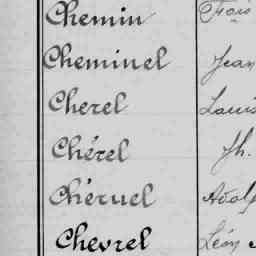 Chemin
Cheminel Jean
Cherel Louis
Chérel Jh.
Chéruel Adolp
Chevrel Léon